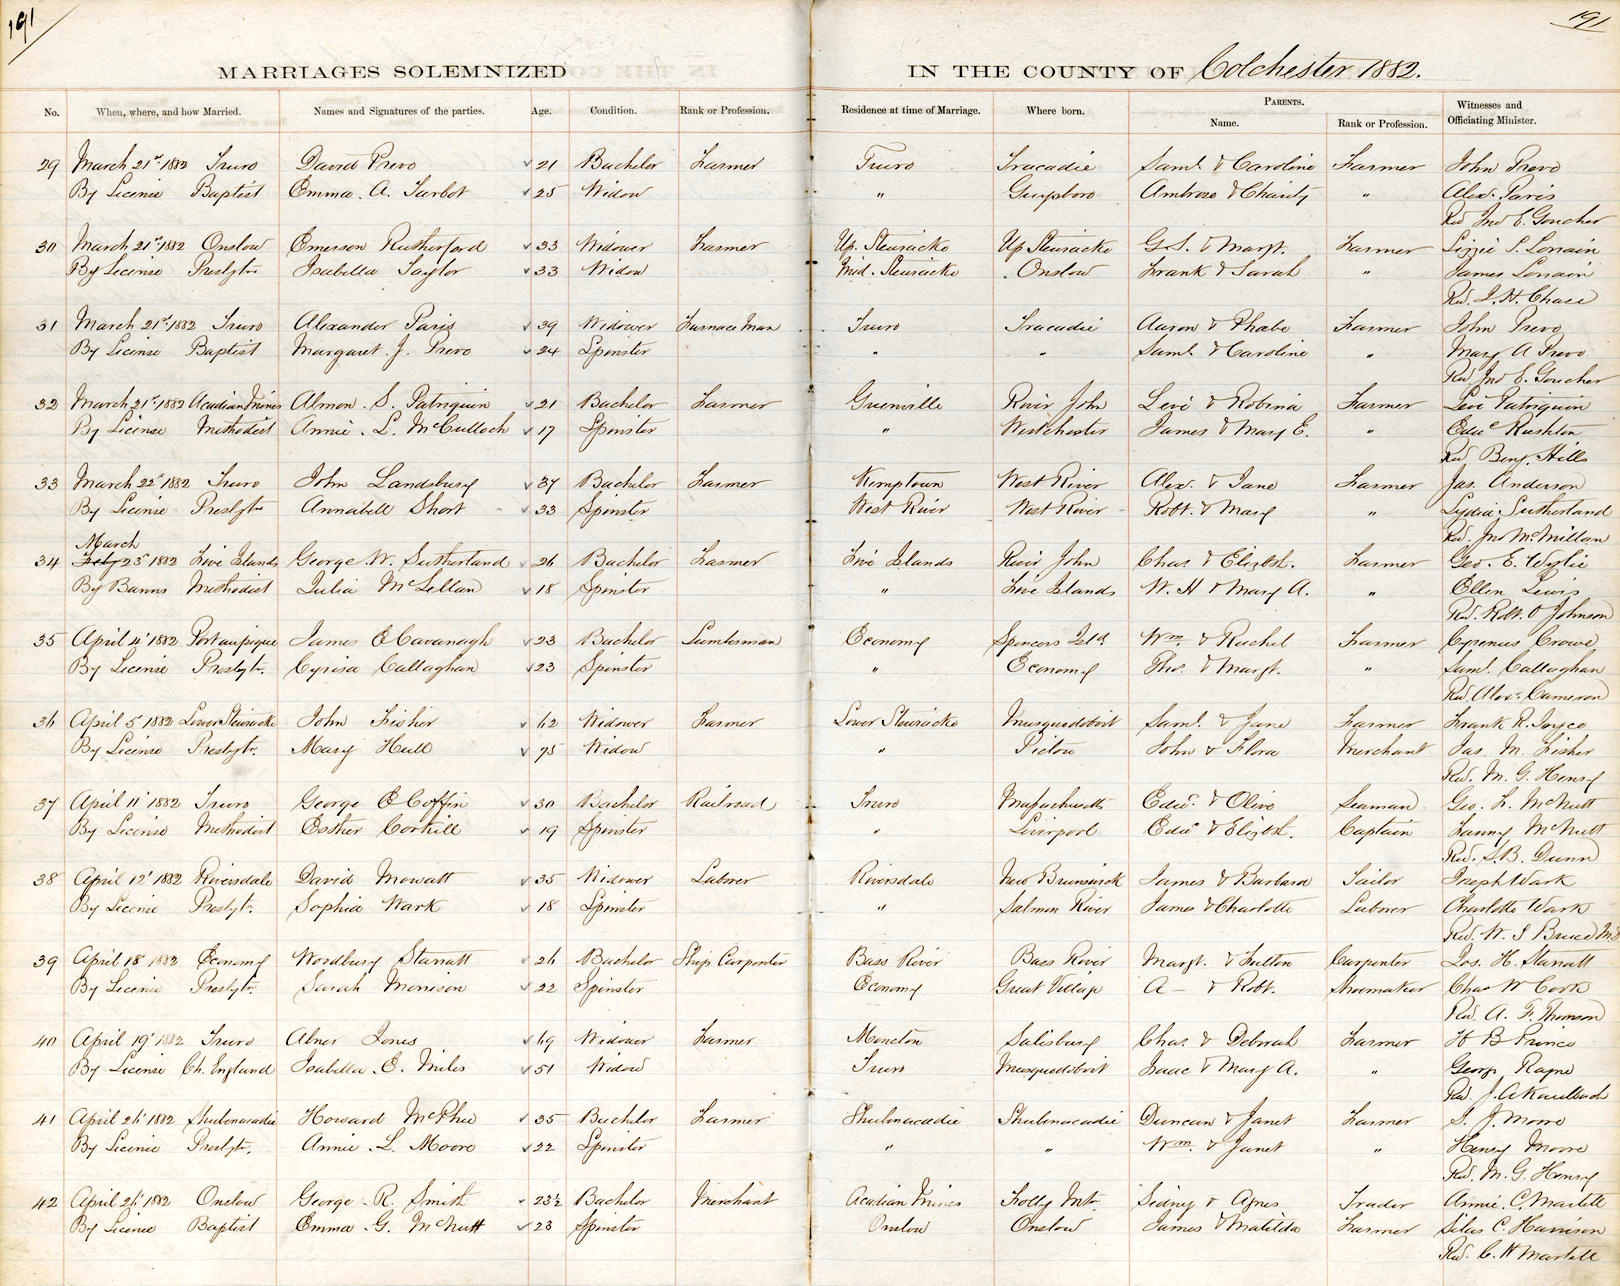 191
191
MARRIAGES SOLEMNIZED IN THE COUNTY OF Colchester 1882.
No. When, where, and how Married. Names and Signatures of the parties. Age. Condition. Rank or Profession. Residence at time of Marriage. Where born. PARENTS. Name. Rank or Profession. Witnesses and Officiating Minister.
29 March 21st 1882 Truro David Prevo 21 Bachelor Farmer Truro Tracadie Saml. & Caroline Farmer John Prevo
By License Baptist Emma A. Tarbot 25 Widow " Guysboro Ambrose & Charity " Alexr. Paris
Rev Jno E. Goucher
30 March 21st 1882 Onslow Emerson Rutherford 33 Widower Farmer Up. Stewiacke Up Stewiacke G. S. & Margt. Farmer Lizzie S. Lorrain
By License Presbytn Isabella Taylor 33 Widow Mid. Stewiacke Onslow Frank & Sarah " James Lorrain
Rev. J. H. Chase
31 March 21st 1882 Truro Alexander Paris 39 Widower Furnace Man Truro Tracadie Aaron & Phœbe Farmer John Prevo
By License Baptist Margaret J. Prevo 24 Spinster " " Saml. & Caroline " Mary A Prevo
Rev. Jno E. Goucher
32 March 21st 1882 Acadian Mines Almon S. Patriquin 21 Bachelor Farmer Greenville River John Levi & Robina Farmer Levi Patriquin
By License Methodist Annie L. McCulloch 17 Spinster " Westchester James & Mary E. " Edwd Rushton
Rev Benj. Hills
33 March 22d 1882 Truro John Landsbury 37 Bachelor Farmer Kemptown West River Alex. & Jane Farmer Jas. Anderson
By License Presbytn Annabell Short 33 Spinster West River West River Robt. & Mary " Lydia Sutherland
Rev. Jno McMillan
March
34 Feby 25 1882 Five Islands George W. Sutherland 26 Bachelor Farmer Five Islands River John Chas & Elizbt. Farmer Geo. E. Wylie
By Banns Methodist Julia McLellan 18 Spinster " Five Islands W. H & Mary A. " Ellen Lewis
Rev. Robt. O Johnson
35 April 4th 1882 Portaupique James E Cavanagh 23 Bachelor Lumberman Economy Spencers Isld. Wm. & Rachel Farmer Cyrenus Crowe
By License Presbytn. Cyrisa Callaghan 23 Spinster " Economy Thos. & Margt. " Saml. Callaghan
Rev Alexr. Cameron
36 April 5 1882 Lower Stewiacke John Fisher 62 Widower Farmer Lower Stewiacke Musquodoboit Saml. & Jane Farmer Frank R. Joyce
By License Presbytn. Mary Hull 75 Widow " Pictou John & Flora Merchant Jas. M. Fisher
Rev. M. G. Henry
37 April 11th 1882 Truro George E Coffin 30 Bachelor Railroad Truro Massachusetts Edwd. & Olive Seaman Geo. L. McNutt
By License Methodist Esther Corkill 19 Spinster " Liverpool Edwd & Elizbt. Captain Fanny McNutt
Rev. S. B. Dunn
38 April 12th 1882 Riversdale David Mowatt 35 Widower Laborer Riversdale New Brunswick James & Barbara Tailor Joseph Wark
By License Presbytn. Sophia Wark 18 Spinster " Salmon River James & Charlotte Laborer Charlotte Wark
Rev. W. S Bruce
39 April 18 1882 Economy Woodbury Starratt 26 Bachelor Ship Carpenter Bass River Bass River Margt. & Fulton Carpenter Jos. H. Starratt
By License Presbytn. Sarah Morrison 22 Spinster Economy Great Village A — & Robt. Shoemaker Chas W Cook
Rev A. F. Thomson
40 April 19th 1882 Truro Abner Jones 69 Widower Farmer Moncton Salisbury Chas. & Deborah Farmer H B Prince
By License Ch. England Isabella E. Miles 51 Widow Truro Musquodoboit Isaac & Mary A. " George Rayne
Rev. J. A Kaulback
41 April 26th 1882 Shubenacadie Howard McPhee 35 Bachelor Farmer Shubenacadie Shubenacadie Duncan & Janet Farmer S. J. Moore
By License Presbytn. Annie L. Moore 22 Spinster " " Wm. & Janet " Henry Moore
Rev. M. G. Henry
42 April 26th 1882 Onslow George R. Smith 23½ Bachelor Merchant Acadian Mines Folly Mt. Sidney & Agnes Trader Annie C. Martell
By License Baptist Emma G. McNutt 23 Spinster Onslow Onslow James & Matilda Farmer Silas C. Harrison
Rev. C. H Martell